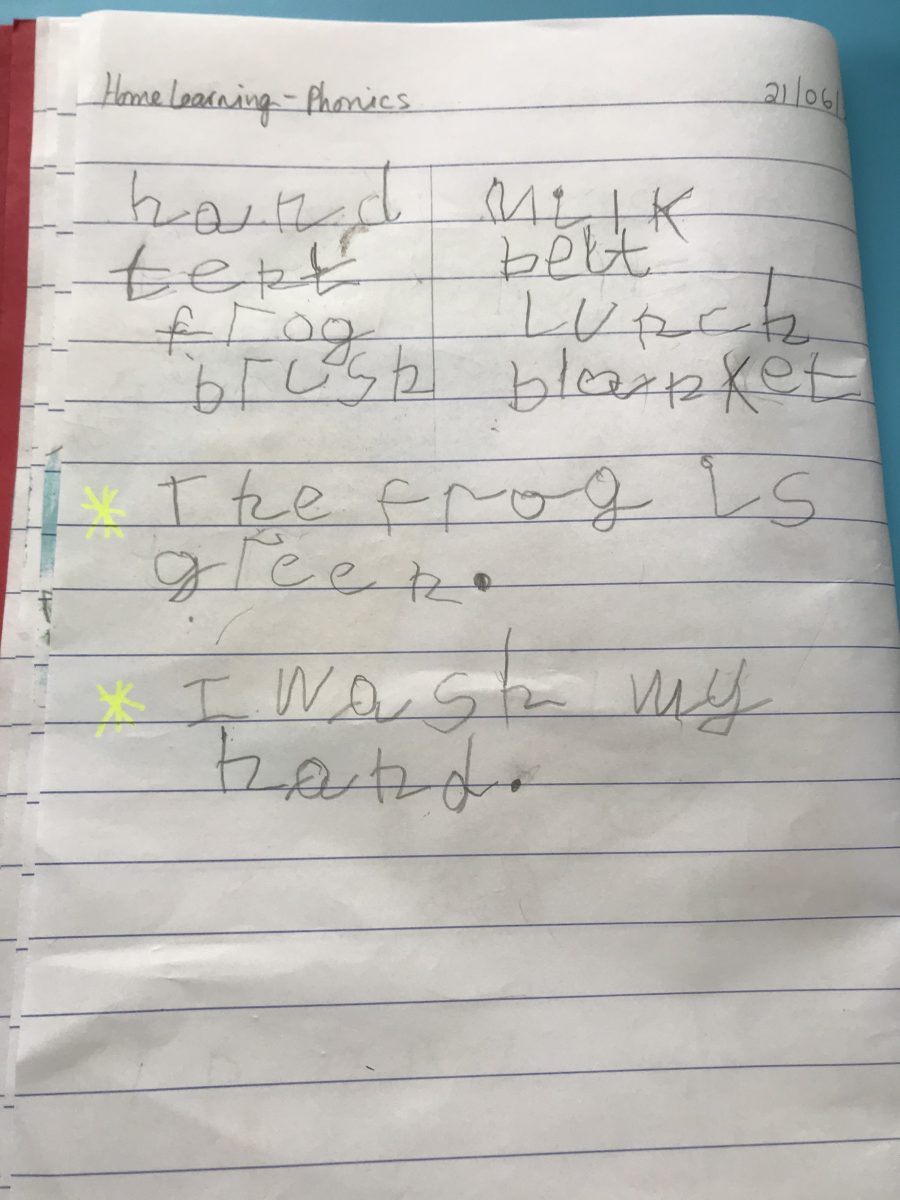 Home Learning - Phonics 21/06/
hand milk
tent belt
frog Lunch
brush blanket
The frog is
green.
I wash my
hand.